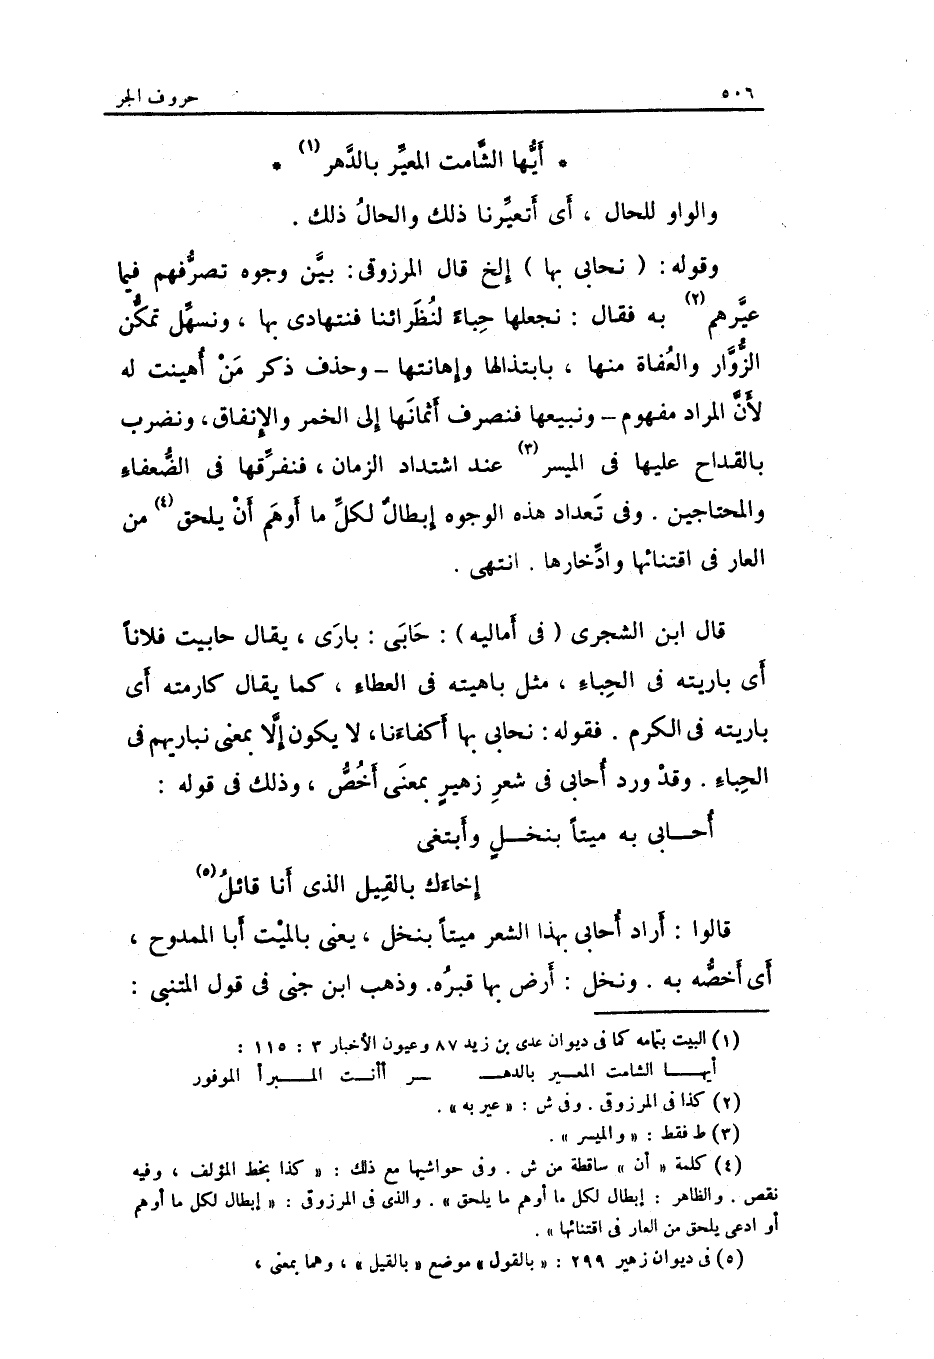 ٥٠٦ حروف الجر
* أَيُّها الشَّامت المعيِّر بالدَّهر(١) *
والواو للحال ، أى أتعيِّرنا ذلك والحالُ ذلك .
وقوله: ( نحابى بها ) إلخ قال المرزوقى: بيَّن وجوه تصرُّفهم فيما
عيَّرهم(٢) به فقال : نجعلها حِباءً لنُظَرائنا فنتهادى بها ، ونسهِّل تمكُّن
الزُّوَّار والعُفاة منها ، بابتذالها وإهانتها – وحذف ذكر مَنْ أُهينت له
لأنَّ المراد مفهوم – ونبيعها فنصرف أثمانَها إلى الخمر والإنفاق، ونضرب
بالقداح عليها فى الميسر(٣) عند اشتداد الزمان ، فنفرِّقها فى الضُّعفاء
والمحتاجين . وفى تَعداد هذه الوجوه إبطالٌ لكلِّ ما أوهَم أنْ يلحق(٤) من
العار فى اقتنائها وادِّخارها . انتهى .
قال ابن الشجرى ( فى أماليه ) : حَابَى : بارَى ، يقال حابيت فلاناً
أى باريته فى الحِباء ، مثل باهيته فى العطاء ، كما يقال كارمته أى
باريته فى الكرم . فقوله : نحابى بها أكفاءنا، لا يكون إلَّا بمعنى نباريهم فى
الحِباء . وقدْ ورد أُحابى فى شعرِ زهيرٍ بمعنَى أَخُصُّ ، وذلك فى قوله :
أُحـــابى به ميتاً بنخــلٍ وأبتغى
إخاءك بالقِيل الذى أنا قائلُ(٥)
قالوا : أراد أُحابى بهذا الشعر ميتاً بنخل ، يعنى بالميْت أبا الممدوح ،
أى أخصُّه به . ونخل : أرض بها قبرُه. وذهب ابن جنى فى قول المتنبى :
(١) البيت بتمامه كما فى ديوان عدى بن زيد ٨٧ وعيون الأخبار ٣ : ١١٥ :
أيهـــا الشامت المعــير بالدهـــ ـــر أأنــت المــبرأ الموفور
(٢) كذا فى المرزوقى . وفى ش : « عير به » .
(٣) ط فقط : « والميسر » .
(٤) كلمة « أن » ساقطة من ش . وفى حواشيها مع ذلك : « كذا بخط المؤلف ، وفيه
نقص . والظاهر : إبطال لكل ما أوهم ما يلحق » . والذى فى المرزوقى : « إبطال لكل ما أوهم
أو ادعى يلحق من العار فى اقتنائها » .
(٥) فى ديوان زهير ٢٩٩ : « بالقول » موضع « بالقيل » ، وهما بمعنى ،